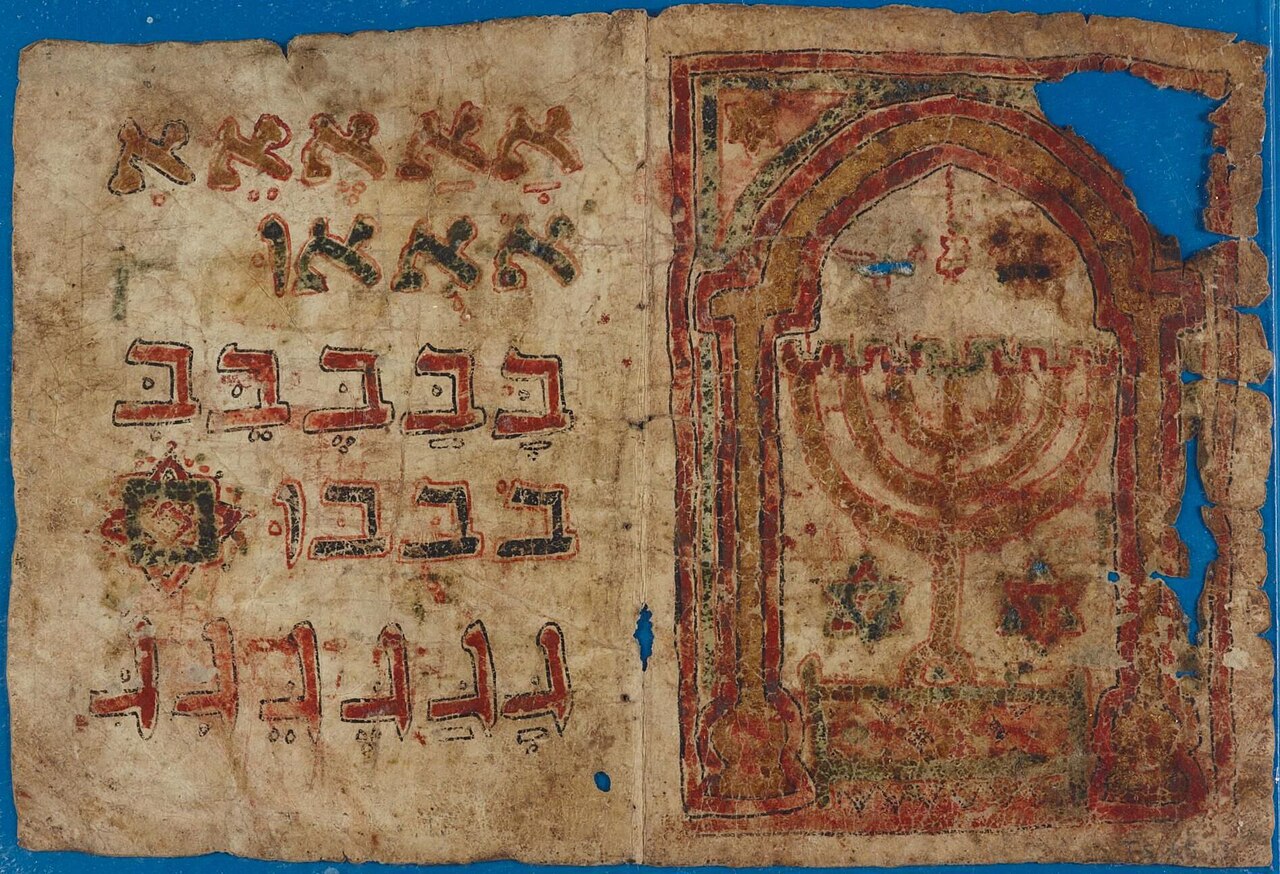 אָ אַ אֶ אֵ אִ
אֹ אְ אוּ
בָּ בַּ בֶּ בֵּ בִּ
בֹּ בְּ בּוּ
גָּ גַּ גֶּ גֵּ גִּ גֹּ